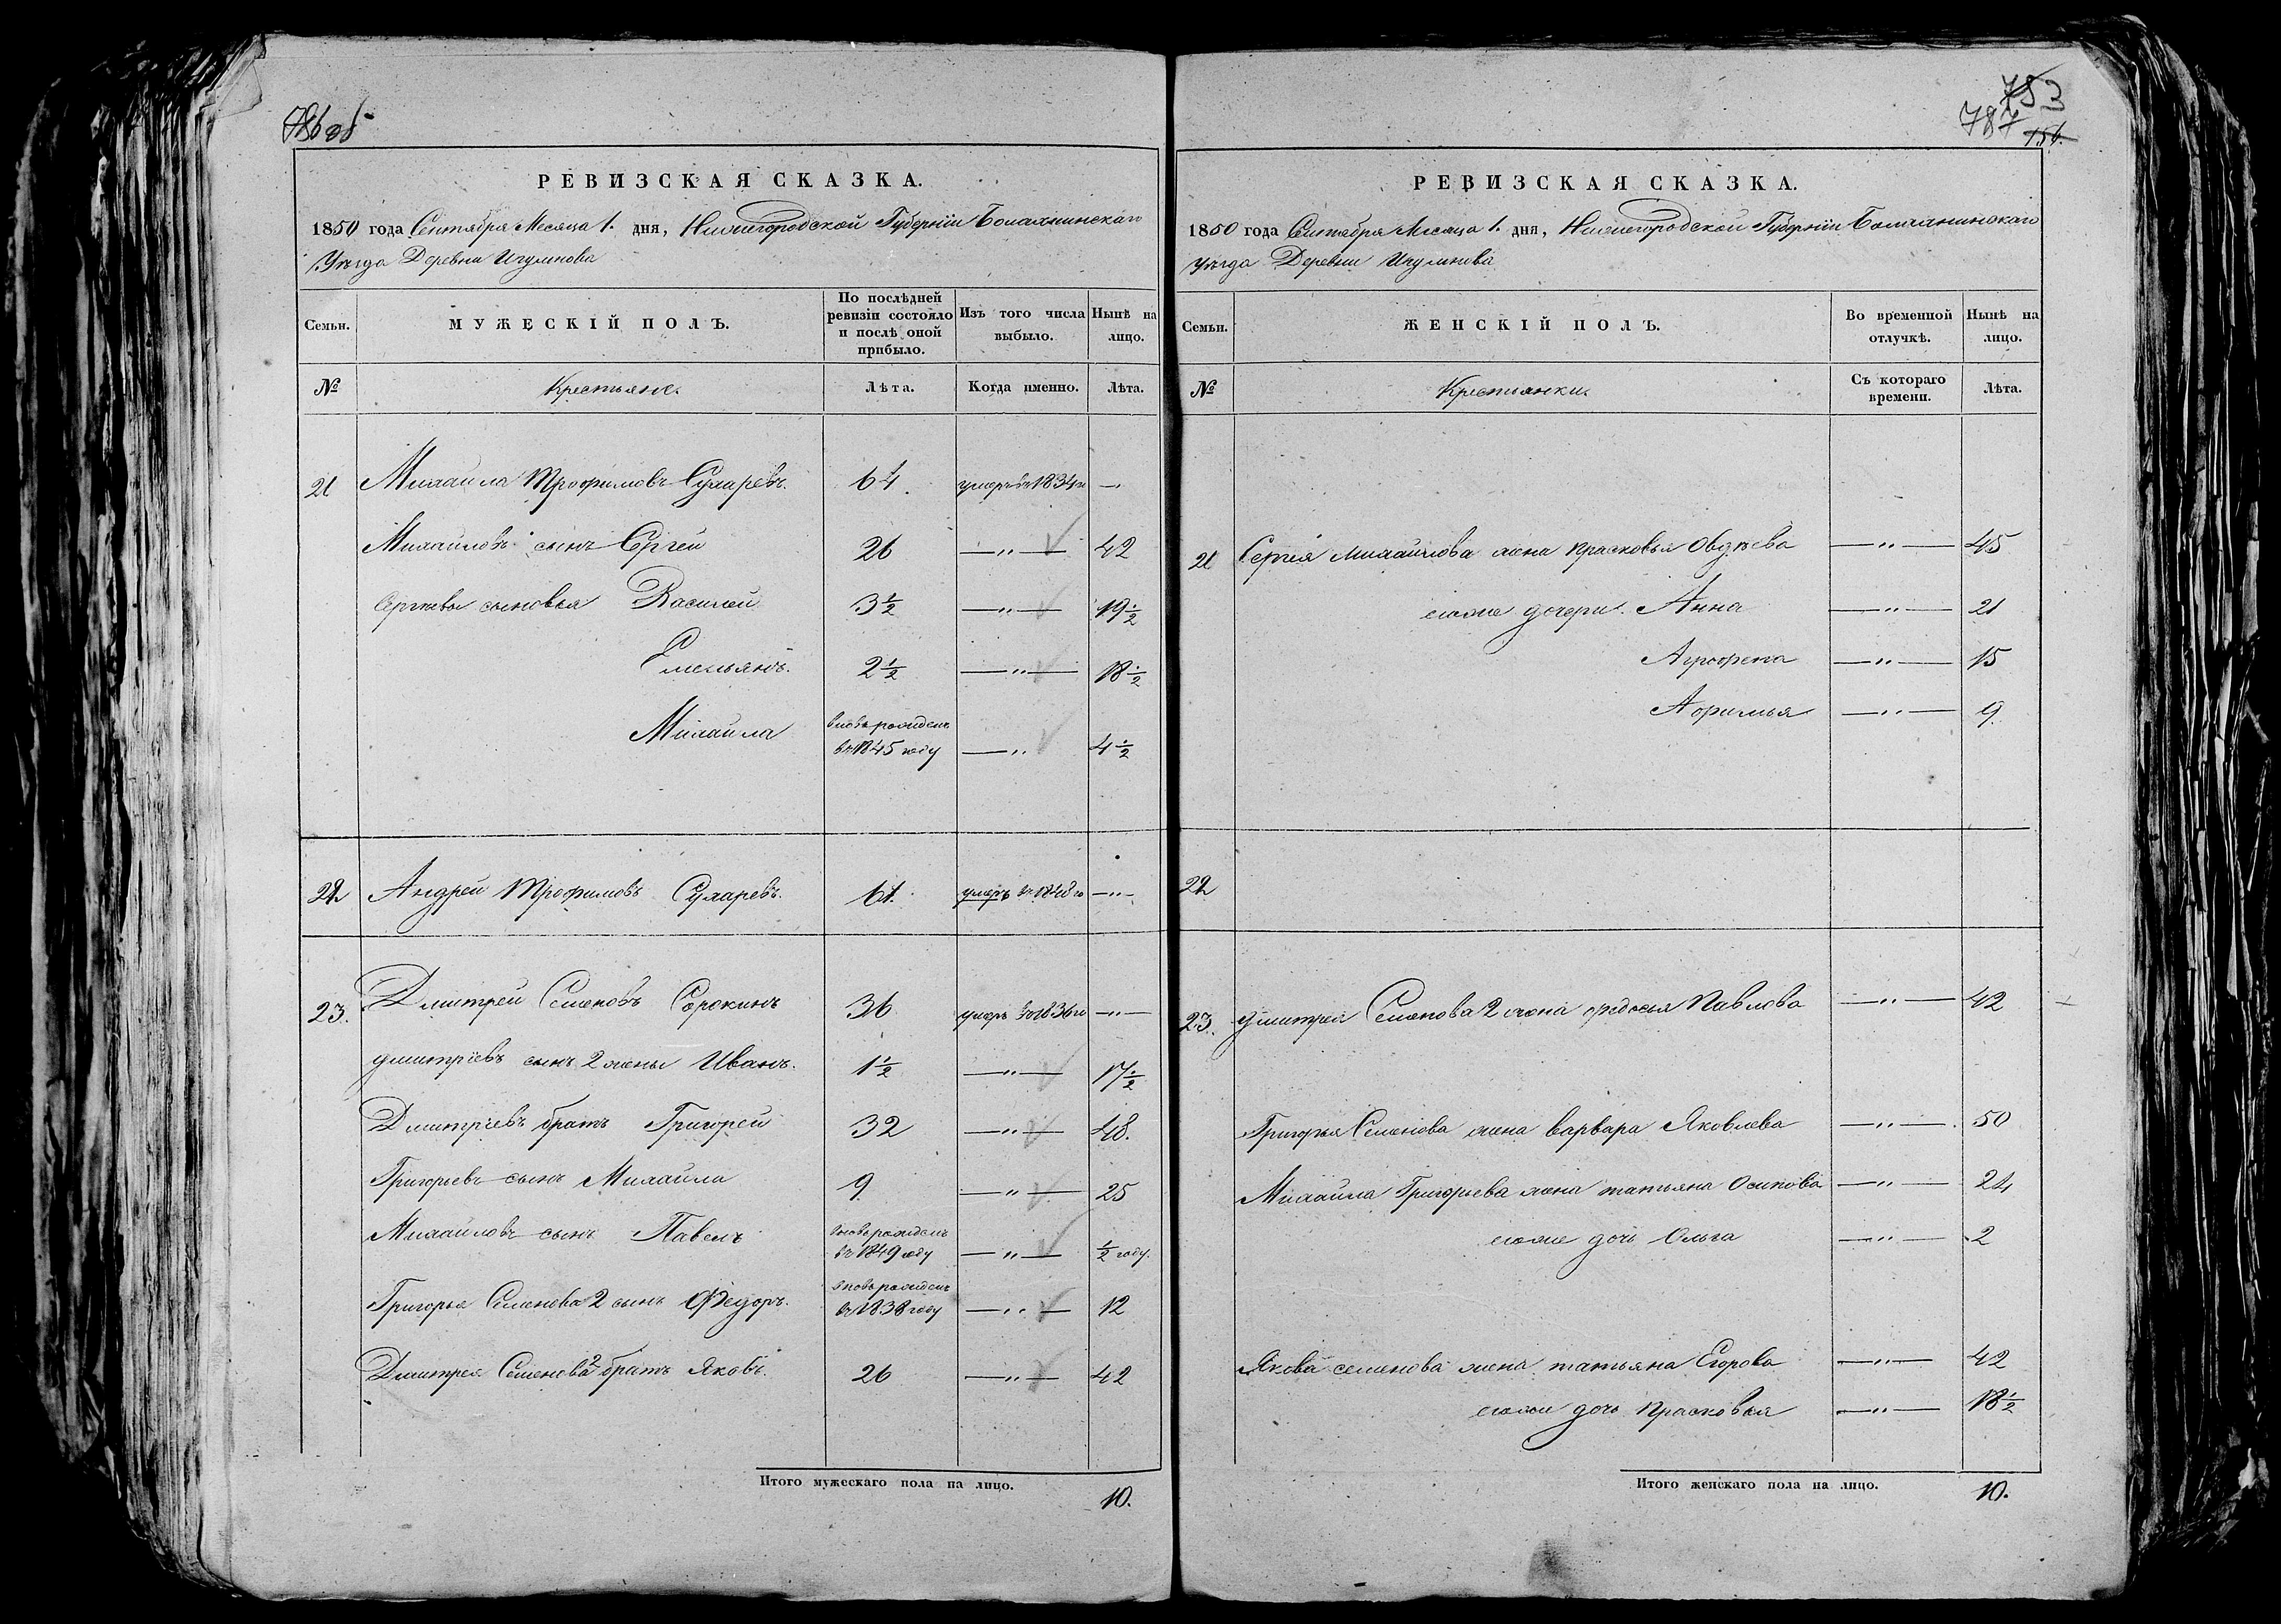 786 об
РЕВИЗСКАЯ СКАЗКА.
1850 года Сентября Месяца 1. дня, Нижегородской Губерніи Балахнинскаго
Уѣзда Деревни Игумнова
Семьи. МУЖЕСКІЙ ПОЛЪ. По послѣдней ревизіи состояло и послѣ оной прибыло. Изъ того числа выбыло. Нынѣ на лицо.
№ Крестьяне. Лѣта. Когда именно. Лѣта.
21 Михаила Трофимовъ Сухаревъ. 64. умеръ въ 1834 го —
Михаиловъ сынъ Сергей 26 —"— 42
Сергѣевы сыновья Василей 3 1/2 —"— 19 1/2
Емельянъ. 2 1/2 —"— 18 1/2
Михаила вновь рожденъ
въ 1845 году —" 4 1/2
22 Андрей Трофимовъ Сухаревъ. 61. умеръ въ 1848 го —"—
23. Дмитрей Семеновъ Сорокинъ 36 умеръ 1836 го —"—
Дмитріевъ сынъ 2 жены Иванъ. 1 1/2 —"— 17 1/2
Дмитріевъ братъ Григорей 32 —"— 48.
Григорьевъ сынъ Михаила 9 —"— 25
Михаиловъ сынъ Павелъ вновь рожденъ
въ 1849 году —"— 1/2 году.
Григорья Семенова 2 сынъ Федоръ. вновь рожденъ
въ 1838 году —"— 12
Дмитрея Семенова 2 братъ Яковъ. 26 —"— 42
Итого мужескаго пола на лицо. 10.
783
787
156.
РЕВИЗСКАЯ СКАЗКА.
1850 года Сентября Месяца 1. дня, Нижегородской Губерніи Балахнинскаго
Уѣзда Деревни Игумнова
Семьи. ЖЕНСКІЙ ПОЛЪ. Во временной отлучкѣ. Нынѣ на лицо.
№ Крестьянки. Съ котораго времени. Лѣта.
21 Сергея Михаилова жена Прасковья Овдѣева —"— 45
его же дочери. Анна —"— 21
Агрофена —"— 15
Афимья —"— 9.
22
23. Дмитрея Семенова 2 жена Федосья Павлова —"— 42
Григорья Семенова жена Варвара Яковлева —"— 50
Михаила Григорьева жена Татьяна Осипова —"— 24
его же дочь Ольга —"— 2
Якова Семенова жена Татьяна Егорова —"— 42
его же дочь Прасковья —"— 18 1/2
Итого женскаго пола на лицо. 10.